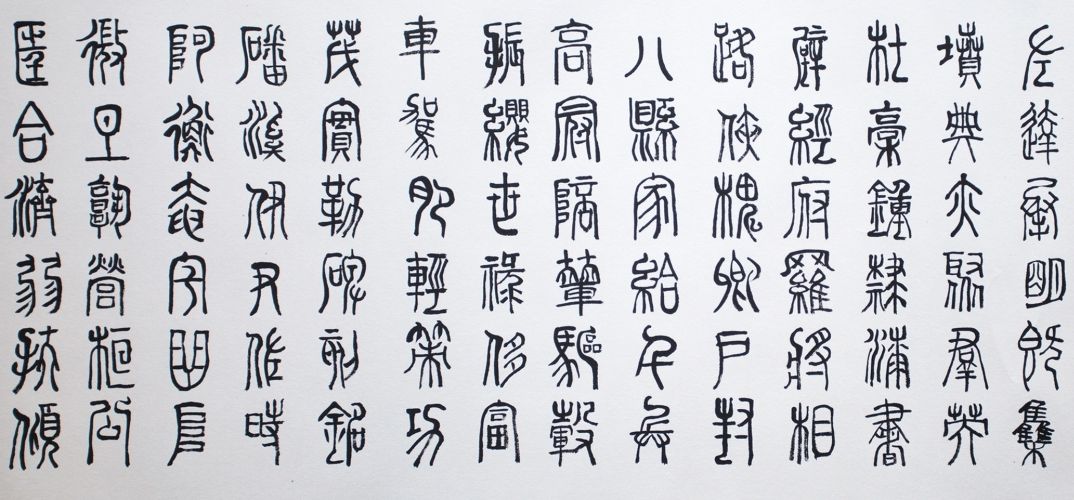 左達承明既集
墳典亦聚群英
杜稾鍾隸漆書
壁經府羅將相
路俠槐卿戶封
八縣家給千兵
高冠陪輦驅轂
振纓世祿侈富
車駕肥輕策功
茂實勒碑刻銘
磻溪伊尹佐時
阿衡奄宅曲阜
微旦孰營桓公
匡合濟弱扶傾